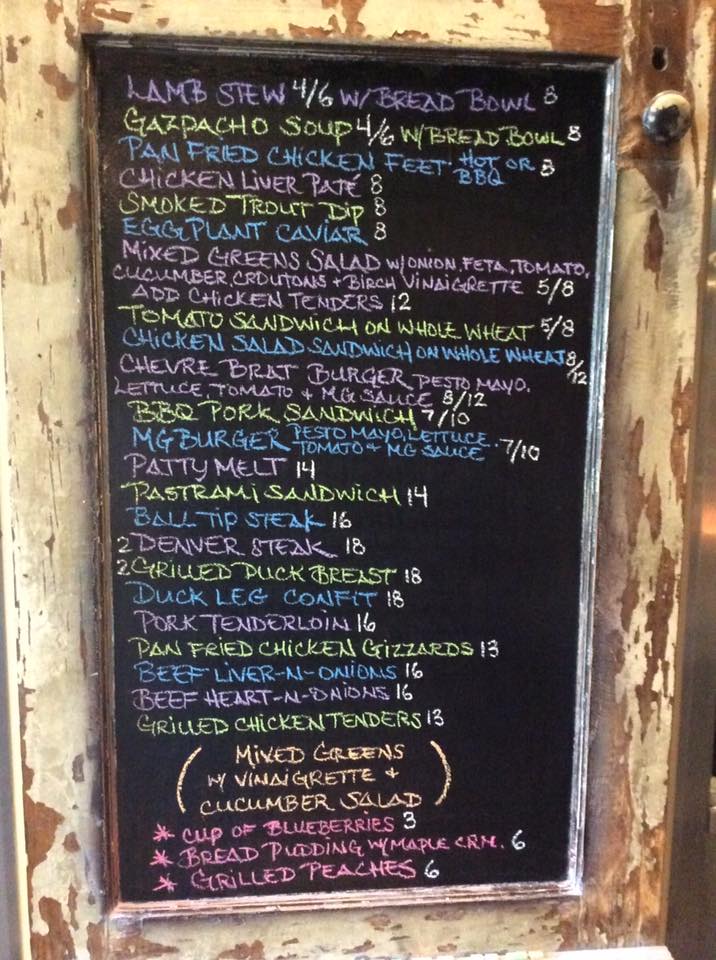 LAMB STEW 4/6 W/BREAD BOWL 8
GAZPACHO SOUP 4/6 W/BREAD BOWL 8
PAN FRIED CHICKEN FEET - HOT OR BBQ 8
CHICKEN LIVER PATÉ 8
SMOKED TROUT DIP 8
EGGPLANT CAVIAR 8
MIXED GREENS SALAD W/ONION, FETA, TOMATO,
CUCUMBER, CROUTONS + BIRCH VINAIGRETTE 5/8
ADD CHICKEN TENDERS 12
TOMATO SANDWICH ON WHOLE WHEAT 5/8
CHICKEN SALAD SANDWICH ON WHOLE WHEAT 8/12
CHEVRE BRAT BURGER PESTO MAYO,
LETTUCE, TOMATO + MG SAUCE 8/12
BBQ PORK SANDWICH 7/10
MG BURGER PESTO MAYO, LETTUCE, TOMATO + MG SAUCE 7/10
PATTY MELT 14
PASTRAMI SANDWICH 14
BALL TIP STEAK 16
2 DENVER STEAK 18
2 GRILLED DUCK BREAST 18
DUCK LEG CONFIT 18
PORK TENDERLOIN 16
PAN FRIED CHICKEN GIZZARDS 13
BEEF LIVER-N-ONIONS 16
BEEF HEART-N-ONIONS 16
GRILLED CHICKEN TENDERS 13
(MIXED GREENS
W/ VINAIGRETTE +
CUCUMBER SALAD)
* CUP OF BLUEBERRIES 3
* BREAD PUDDING W/MAPLE CRM. 6
* GRILLED PEACHES 6